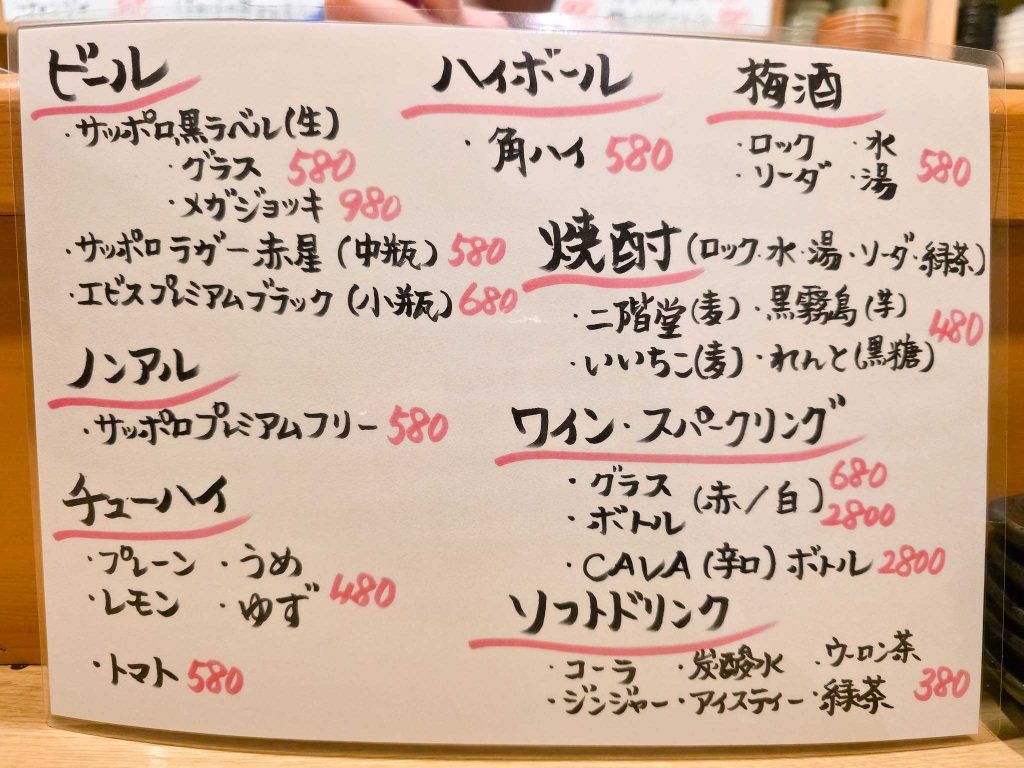 ビール
・サッポロ黒ラベル(生)
・グラス 580
・メガジョッキ 980
・サッポロラガー赤星(中瓶) 580
・エビスプレミアムブラック(小瓶) 680
ノンアル
・サッポロプレミアムフリー 580
チューハイ
・プレーン ・うめ
・レモン ・ゆず 480
・トマト 580
ハイボール
・角ハイ 580
梅酒
・ロック ・水
・ソーダ ・湯 580
焼酎(ロック・水・湯・ソーダ・緑茶)
・二階堂(麦) ・黒霧島(芋)
・いいちこ(麦) ・れんと(黒糖) 480
ワイン・スパークリング
・グラス (赤/白) 680
・ボトル 2800
・CAVA(辛口)ボトル 2800
ソフトドリンク
・コーラ ・炭酸水 ・ウーロン茶
・ジンジャー ・アイスティー ・緑茶 380